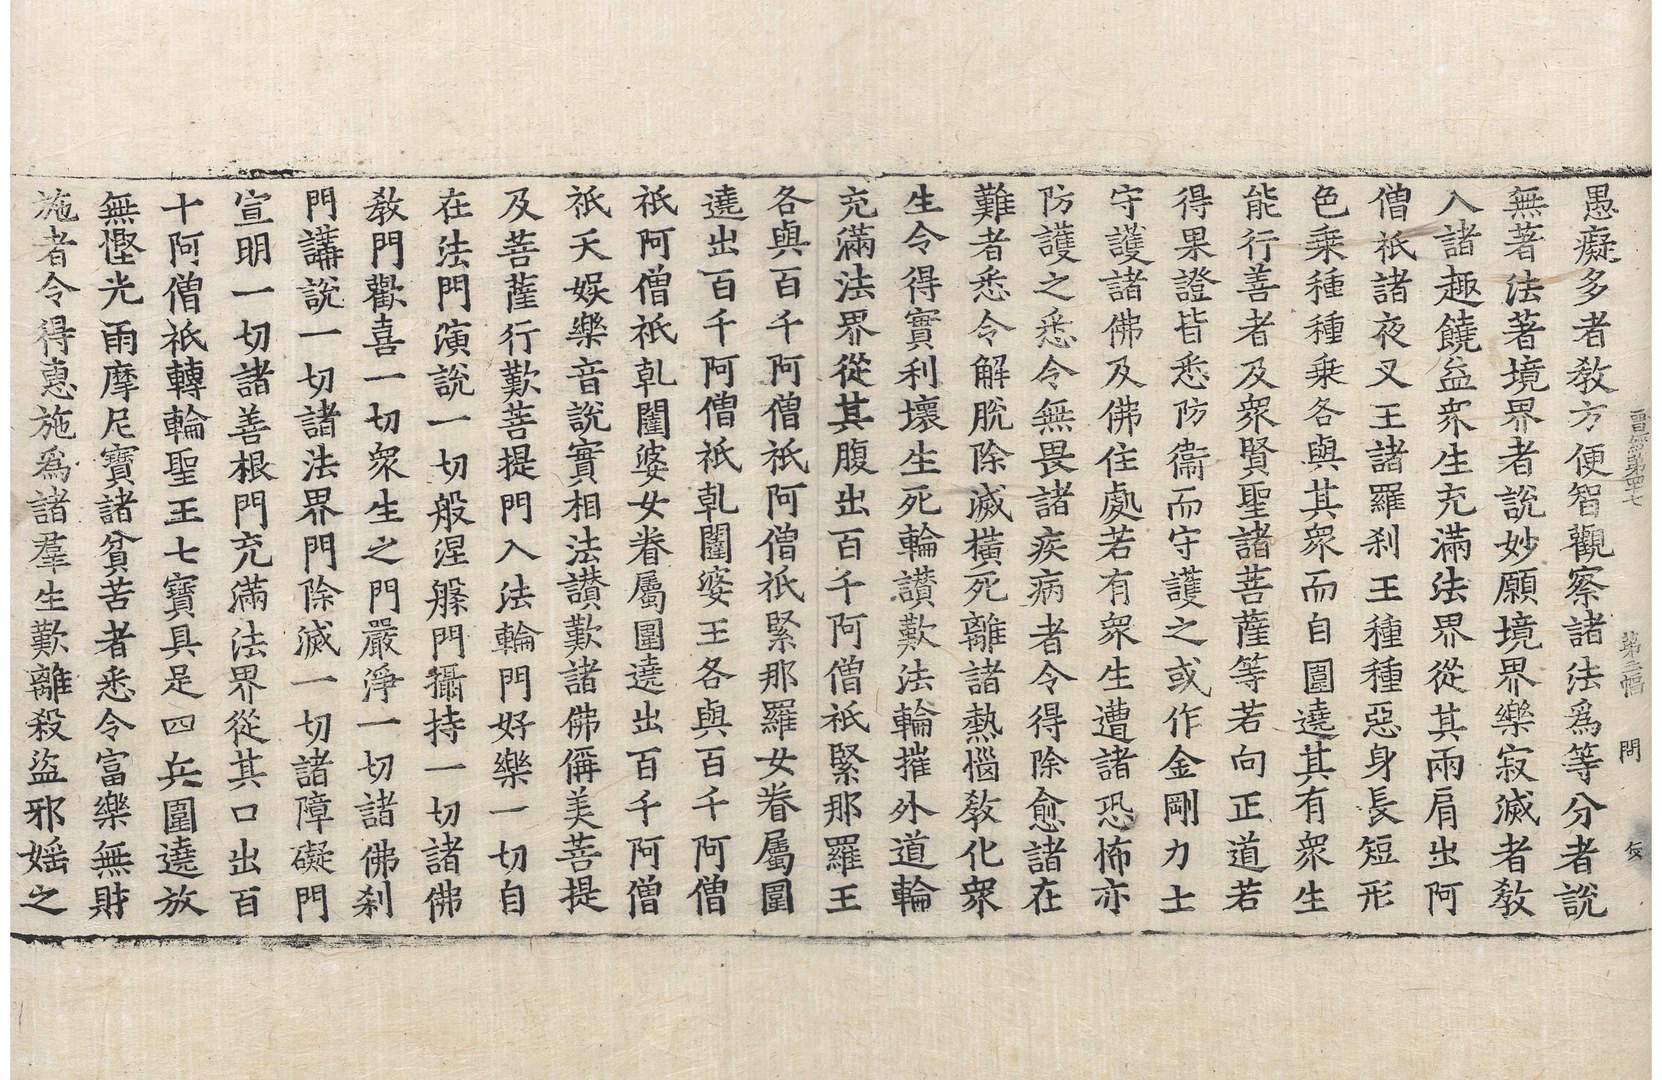 晉經第四七 第三幅 問
愚癡多者敎方便智觀察諸法爲等分者說
無著法著境界者說妙願境界樂寂滅者敎
入諸趣饒益衆生充滿法界從其兩肩出阿
僧祇諸夜叉王諸羅刹王種種惡身長短形
色乘種種乘各與其衆而自圍遶其有衆生
能行善者及衆賢聖諸菩薩等若向正道若
得果證皆悉防衞而守護之或作金剛力士
守護諸佛及佛住處若有衆生遭諸恐怖亦
防護之悉令無畏諸疾病者令得除愈諸在
難者悉令解脫除滅橫死離諸熱惱敎化衆
生令得實利壞生死輪讃歎法輪摧外道輪
充滿法界從其腹出百千阿僧祇緊那羅王
各與百千阿僧祇阿僧祇緊那羅女眷屬圍
遶出百千阿僧祇乹闥婆王各與百千阿僧
祇阿僧祇乹闥婆女眷屬圍遶出百千阿僧
祇天娛樂音說實相法讃歎諸佛偁美菩提
及菩薩行歎菩提門入法輪門好樂一切自
在法門演說一切般涅槃門攝持一切諸佛
敎門歡喜一切衆生之門嚴淨一切諸佛刹
門講說一切諸法界門除滅一切諸障礙門
宣明一切諸善根門充滿法界從其口出百
十阿僧祇轉輪聖王七寶具足四兵圍遶放
無慳光雨摩尼寶諸貧苦者悉令富樂無財
施者令得惠施爲諸羣生歎離殺盜邪婬之